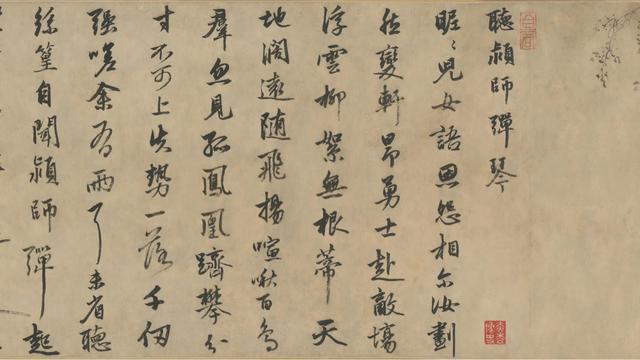 聽潁師彈琴
昵〻兒女語恩怨相尔汝劃
然變軒昂勇士赴敵場
浮雲柳絮無根蒂天
地闊遠隨飛揚喧啾百鳥
羣忽見孤鳳凰躋攀分
寸不可上失勢一落千仞
強嗟余有兩耳未省聽
絲篁自聞潁師彈起